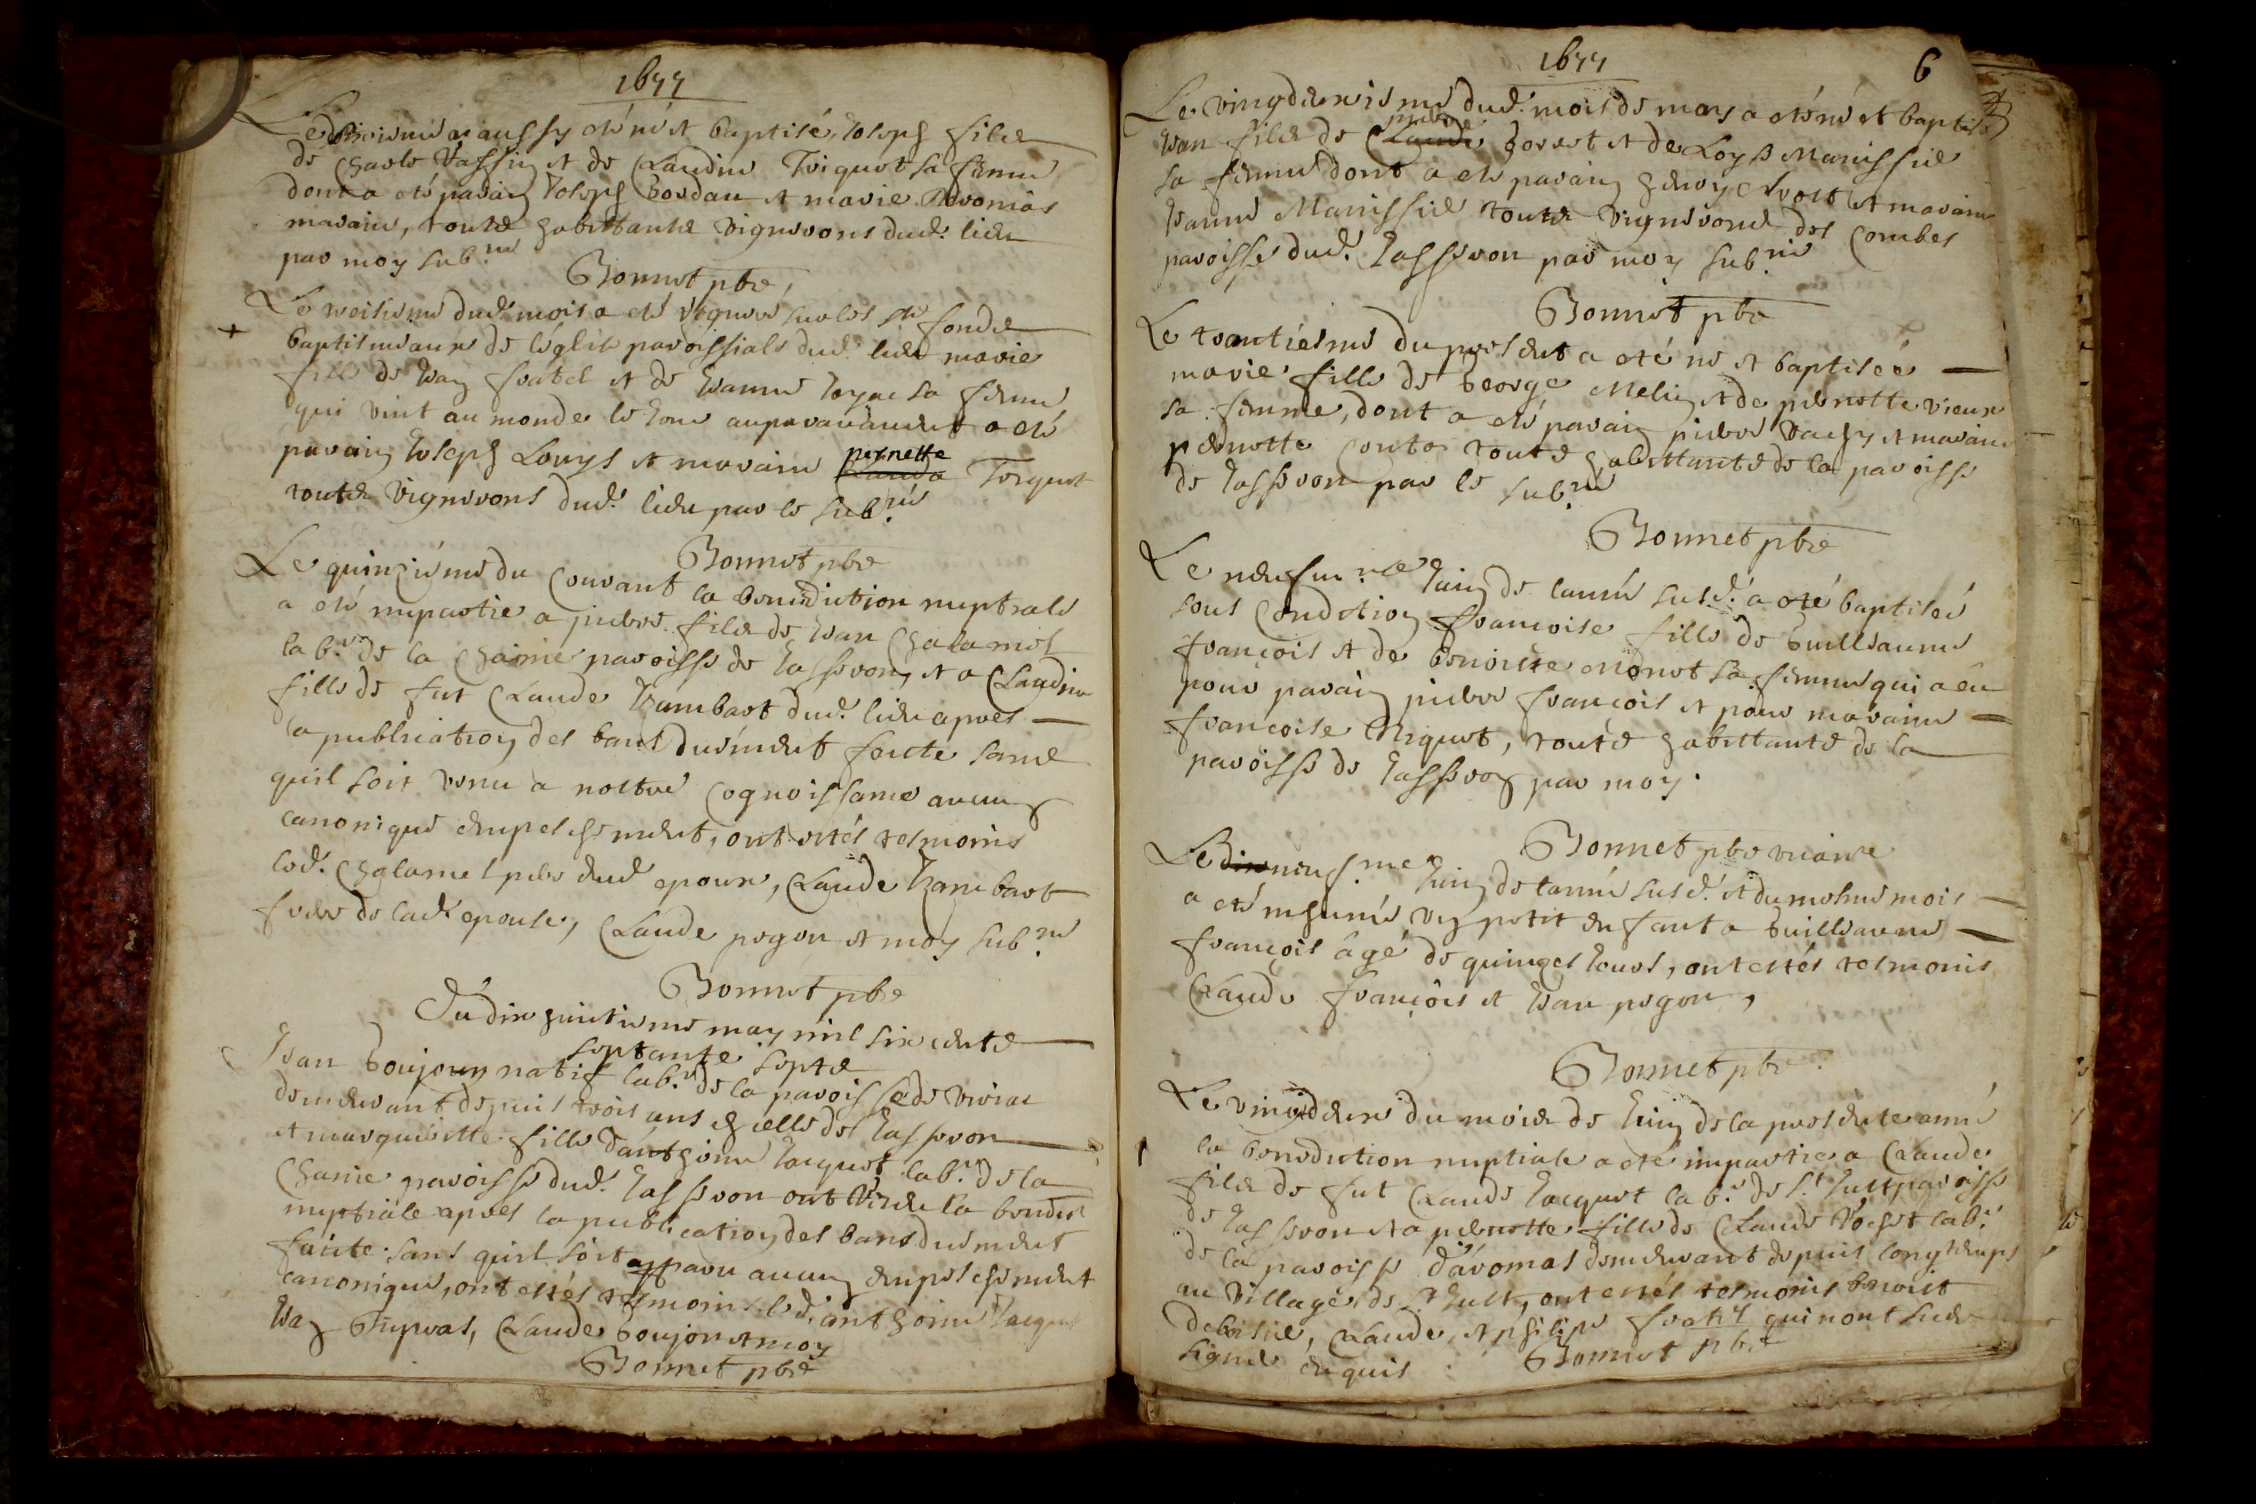 1677
Le troisieme a aussy eté né et baptisé Joseph filz
de Charle Vassin et de Claudine Triquet sa femme
dont a eté parain Joseph Bordau et marie
maraine, toutz habittantz vignerons dud. lieu
par moy subné
Bonnet pbre
Le treisieme dud. mois a eté sur les stz fondz
baptismeaux de léglise parroissiale dud. lieu marie
fille de Jean fratel et de Jeanne sa femme
qui vint au monde le jour auparavandent a eté
parain Joseph Louys et maraine pernette Triquet
toutz vignerons dud. lieu par le subné
Bonnet pbre
Le quinziéme du Courant la benediction nuptiale
a eté impartie a pierre filz de Jean Chalamel
labr. de la Chainée parroisse de Jasseron, et a Claudine
fille de fut Claude Jeambart dud. lieu apres
la publication des bans duement faicte sans
quil soit venu a nottre Cognoissance aucun
canonique empeschement, ont estés tesmoins
led. Chalamel pere dud. epoux, Claude Jeambart
frere de lad. epouse, Claude pogon et moy subné
Bonnet pbre
Du dix huictieme may mil six centz
septante septz
Jean Goujon natif labr. de la parroisse de viriat
demeurant depuis trois ans en celle de Jasseron
et marguerite fille danthoine Jacquet labr. de la
Chainée parroisse dud. Jasseron ont la benedon
nuptiale apres la publication des bans duement
faicte sans quil soit apparu aucun empeschement
canonique, ont estés tesmoins led. anthoine Jacquet
Jean Claude Goujon et moy
Bonnet pbre
1677
6
Le vingdeuxieme dud. mois de mars a eté né et baptisé
Jean filz de pierre Goret et de Loyse Manissier
sa femme dont a eté parain et maraine
Jeanne Manissier toutz vignerons des Combes
parroisse dud. Jasseron par moy subné
Bonnet pbre
Le trantiésme du present a eté né et baptisée
marie fille de George Melin et de pernette vieux
sa femme, dont a eté parain pierre et maraine
pernette Conte toutz habittantz de la parroisse
de Jasseron par le subné
Bonnet pbre
Le neufume Juin de lannée susd. a eté baptisée
sous Condition francoise fille de Guilleaume
françois et de benoiste Monet sa femme qui a eu
pour parain pierre françois et pour maraine
francoise Niquet, toutz habittantz de la
parroisse de Jasseron par moy.
Bonnet pbre vicaire
Le neufme Juin de lannée susd. et du mesme mois
a eté inhumé un petit enfant a Guilleaume
françois âgé de quinzes jours, ont estés tesmoins
Claude françois et Jean pogon,
Bonnet pbre
Le vingdeux du mois de Juin de la presente année
la benediction nuptiale a eté impartie a Claude
filz de fut Claude Jacquet labr. de St. Just parroisse
de Jasseron et a pernette fille de Claude Vochet labr.
de la parroisse dáromas demeurant depuis long temps
au village de St. Just, ont estés tesmoins benoist
Claude, et philipe fratel qui nont sceu
signer enquis
Bonnet pbre